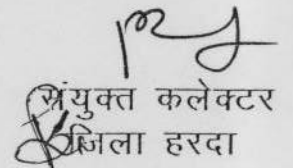 संयुक्त कलेक्टर
जिला हरदा